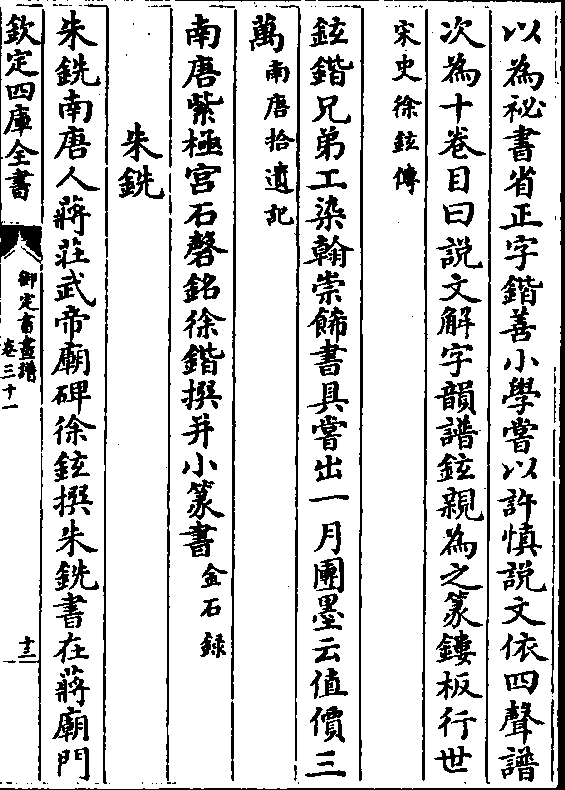 以為祕書省正字鍇善小學嘗以許慎說文依四聲譜
次為十卷目曰說文解字韻譜鉉親為之篆鏤板行世
宋史徐鉉傳
鉉鍇兄弟工染翰崇飾書具嘗出一月團墨云值價三
萬南唐拾遺記
南唐紫極宮石磬銘徐鍇撰并小篆書金石錄
朱銑
朱銑南唐人蔣莊武帝廟碑徐鉉撰朱銑書在蔣廟門
欽定四庫全書
御定書畫譜
卷三十一
十三